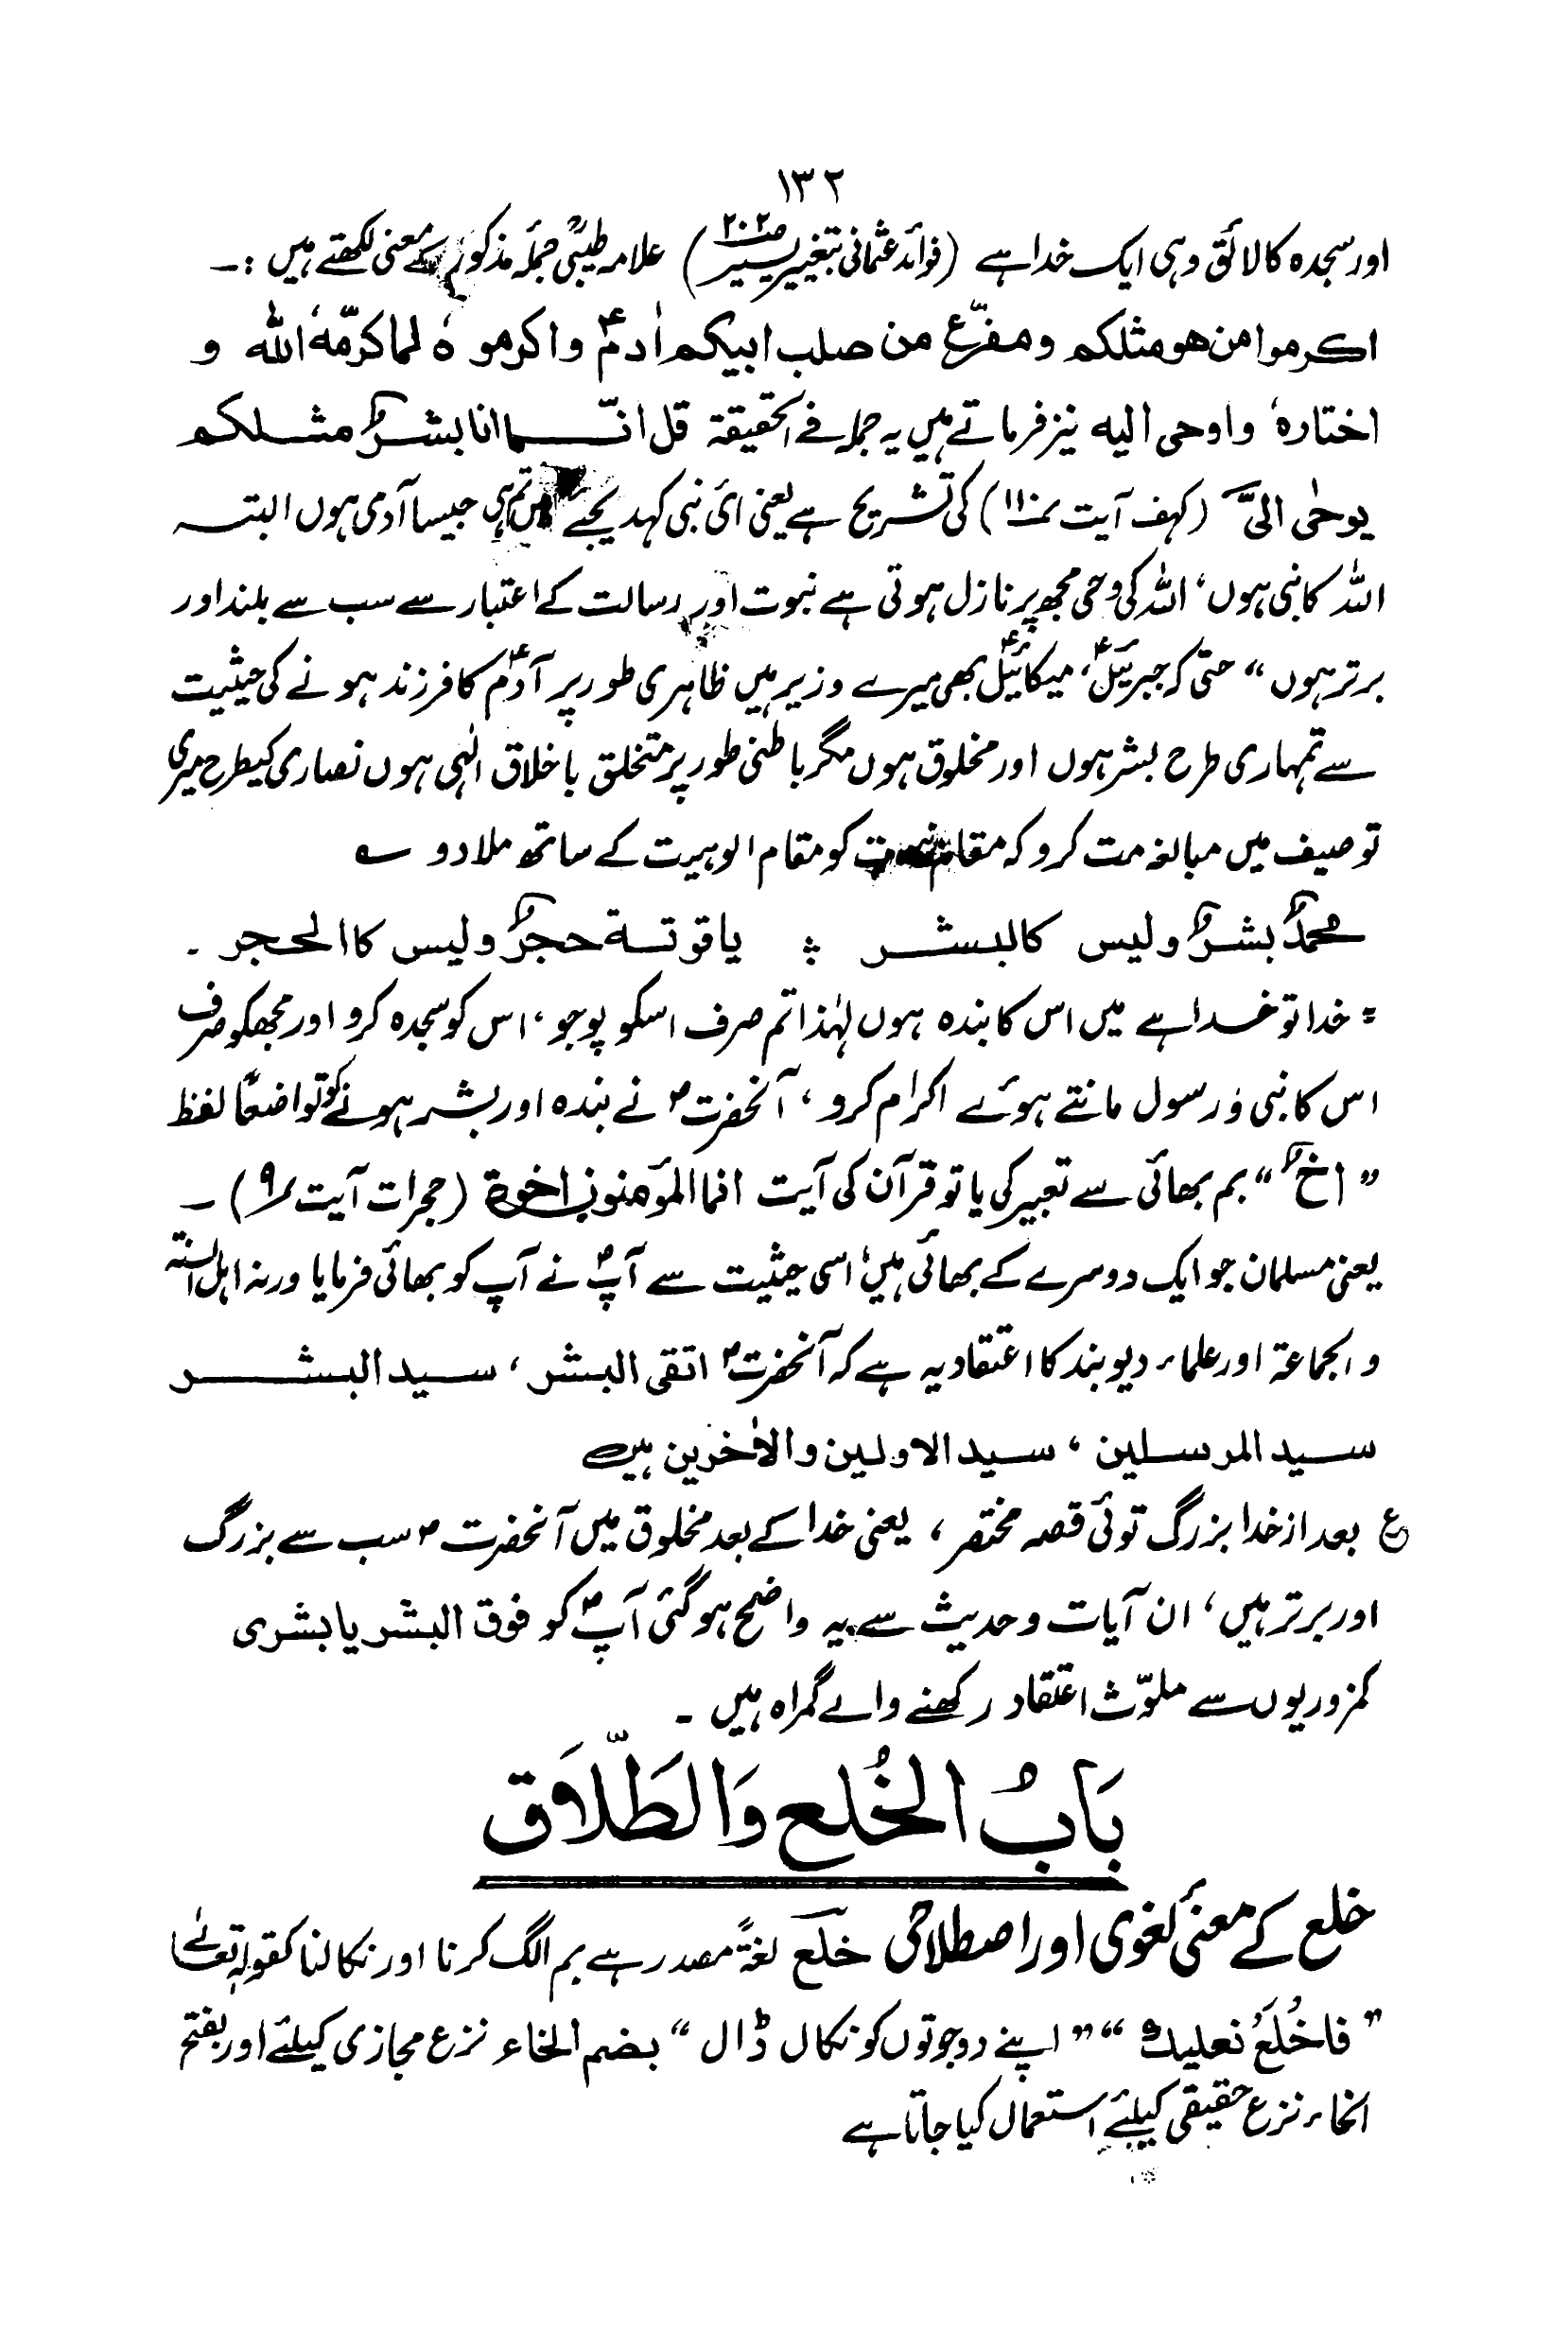 ۱۳۲
اور سجدہ کا لائق وہی ایک خدا ہے (فوائد عثمانی بتغییر یسیر صـ۲۰۲) علامہ طیبیؒ جملۂ مذکورہ کے معنی لکھتے ہیں :۔
اکرموا من ھو مثلکم ومفرّع من صلب ابیکم اٰدمؑ واکرموہٗ لما کرّمہٗ اللہ و
اختارہٗ واوحی الیہ نیز فرماتے ہیں یہ جملہ فے الحقیقۃ قل انّما انا بشرٌ مثلکم
یوحٰی الیَّ (کہف آیت ؍۱۱۰) کی تشریح ہے یعنی ائ نبی کہدیجئے میں تم ہی جیسا آدمی ہوں البتہ
اللہ کا نبی ہوں، اللہ کی وحی مجھ پر نازل ہوتی ہے نبوت اور رسالت کے اعتبار سے سب سے بلند اور
برتر ہوں “ حتی کہ جبرئیلؑ، میکائیلؑ بھی میرے وزیر ہیں ظاہری طور پر آدمؑ کا فرزند ہونے کی حیثیت
سے تمہاری طرح بشر ہوں اور مخلوق ہوں مگر باطنی طور پر متخلق باخلاق الٰہی ہوں نصاری کیطرح میری
توصیف میں مبالغہ مت کرو کہ مقام نبوت کو مقام الوہیت کے ساتھ ملا دو ؎
محمدٌ بشرٌ ولیس کالبشر ؞ یاقوتۃ حجرٌ ولیس کاالحجر ۔
= خدا تو خدا ہے میں اس کا بندہ ہوں لہٰذا تم صرف اسکو پوجو، اس کو سجدہ کرو اور مجھکو صرف
اس کا نبی و رسول مانتے ہوئے اکرام کرو، آنحضرت ؐ نے بندہ اور بشر ہونے کو تواضعًا لفظ
” اخٌ “ بم بھائی سے تعبیر کی یا تو قرآن کی آیت انما المؤمنون اخوۃ (حجرات آیت ؍۹) ۔
یعنی مسلمان جو ایک دوسرے کے بھائی ہیں اسی حیثیت سے آپؐ نے آپ کو بھائی فرمایا ورنہ اہل السنۃ
والجماعۃ اور علماء دیوبند کا اعتقاد یہ ہے کہ آنحضرتؐ اتقی البشر، سید البشر
سید المرسلین، سید الاولین والاٰخرین ہیں
ع بعد از خدا بزرگ توئی قصہ مختصر، یعنی خدا کے بعد مخلوق میں آنحضرت ؐ سب سے بزرگ
اور برتر ہیں، ان آیات وحدیث سے یہ واضح ہو گئی آپؐ کو فوق البشر یا بشری
کمزوریوں سے ملوّث اعتقاد رکھنے والے گمراہ ہیں ۔
بَابُ الخُلع وَالطَّلَاق
خلع کے معنیٔ لغوی اور اصطلاحی خلع لغۃً مصدر ہے بم الگ کرنا اور نکالنا کقولہٖ تعالٰے
” فاخْلَعْ نعلیك “ ” اپنے دو جوتوں کو نکال ڈال “ بضم الخاء نزع مجازی کیلئے اور بفتح
الخاء نزع حقیقی کیلئے استعمال کیا جاتا ہے